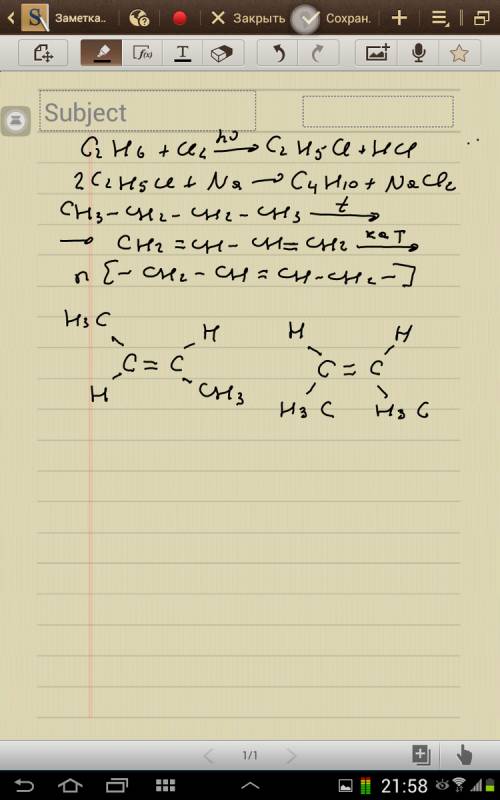 Заметка..
Закрыть
Сохран.
f(x)
T
Subject
C2H6 + Cl2 hν→ C2H5Cl + HCl
2C2H5Cl + Na → C4H10 + NaCl2
CH3-CH2-CH2-CH3 t→
→ CH2=CH-CH=CH2 кат→
n [-CH2-CH=CH-CH2-]
H3C H H H
C=C C=C
H CH3 H3C H3C
1/1
21:58